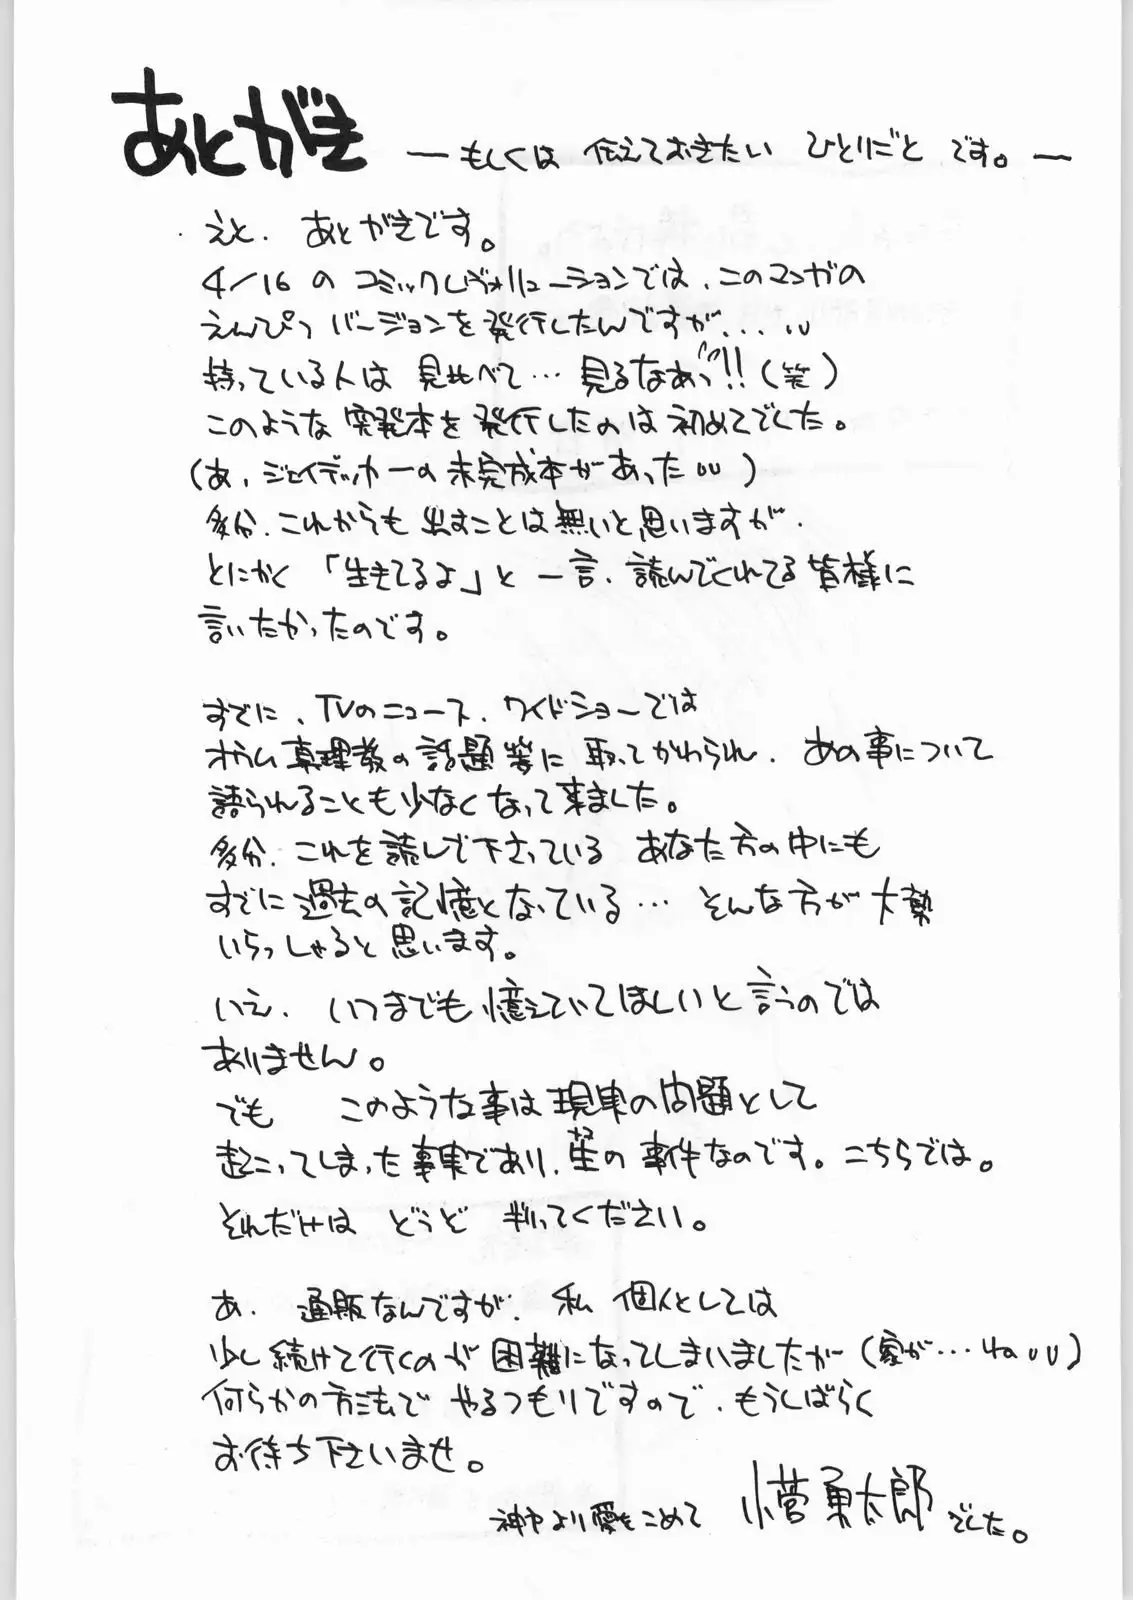 あとがき ― もしくは 伝えておきたい ひとりごと です。―
えと、あとがきです。
4/16 の コミックレヴォリューションでは、このマンガの
えんぴつ バージョンを発行したんですが…
持っている人は 見比べて… 見るなあっ!!(笑)
このような 突発本を発行したのは初めてでした。
(あ、ジェイデッカーの未完成本があった)
多分、これからも 出すことは無いと思いますが、
とにかく「生きてるよ」と 一言、読んでくれてる皆様に
言いたかったのです。
すでに、TVのニュース、ワイドショーでは
オウム真理教の話題等に 取ってかわられ、あの事について
語られることも少なくなって来ました。
多分、これを読んで下さっている あなた方の中にも
すでに過去の記憶となっている… そんな方が大勢
いらっしゃると思います。
いえ、いつまでも憶えていてほしいと言うのでは
ありません。
でも このような事は現実の問題として
起こってしまった事実であり、生の事件なのです。こちらでは。
それだけは どうぞ 判ってください。
あ、通販なんですが、私 個人としては
少し続けて行くのが困難になってしまいましたが(家が…ね)
何らかの方法で やるつもりですので、もうしばらく
お待ち下さいませ。
神戸より愛をこめて 小菅勇太郎でした。